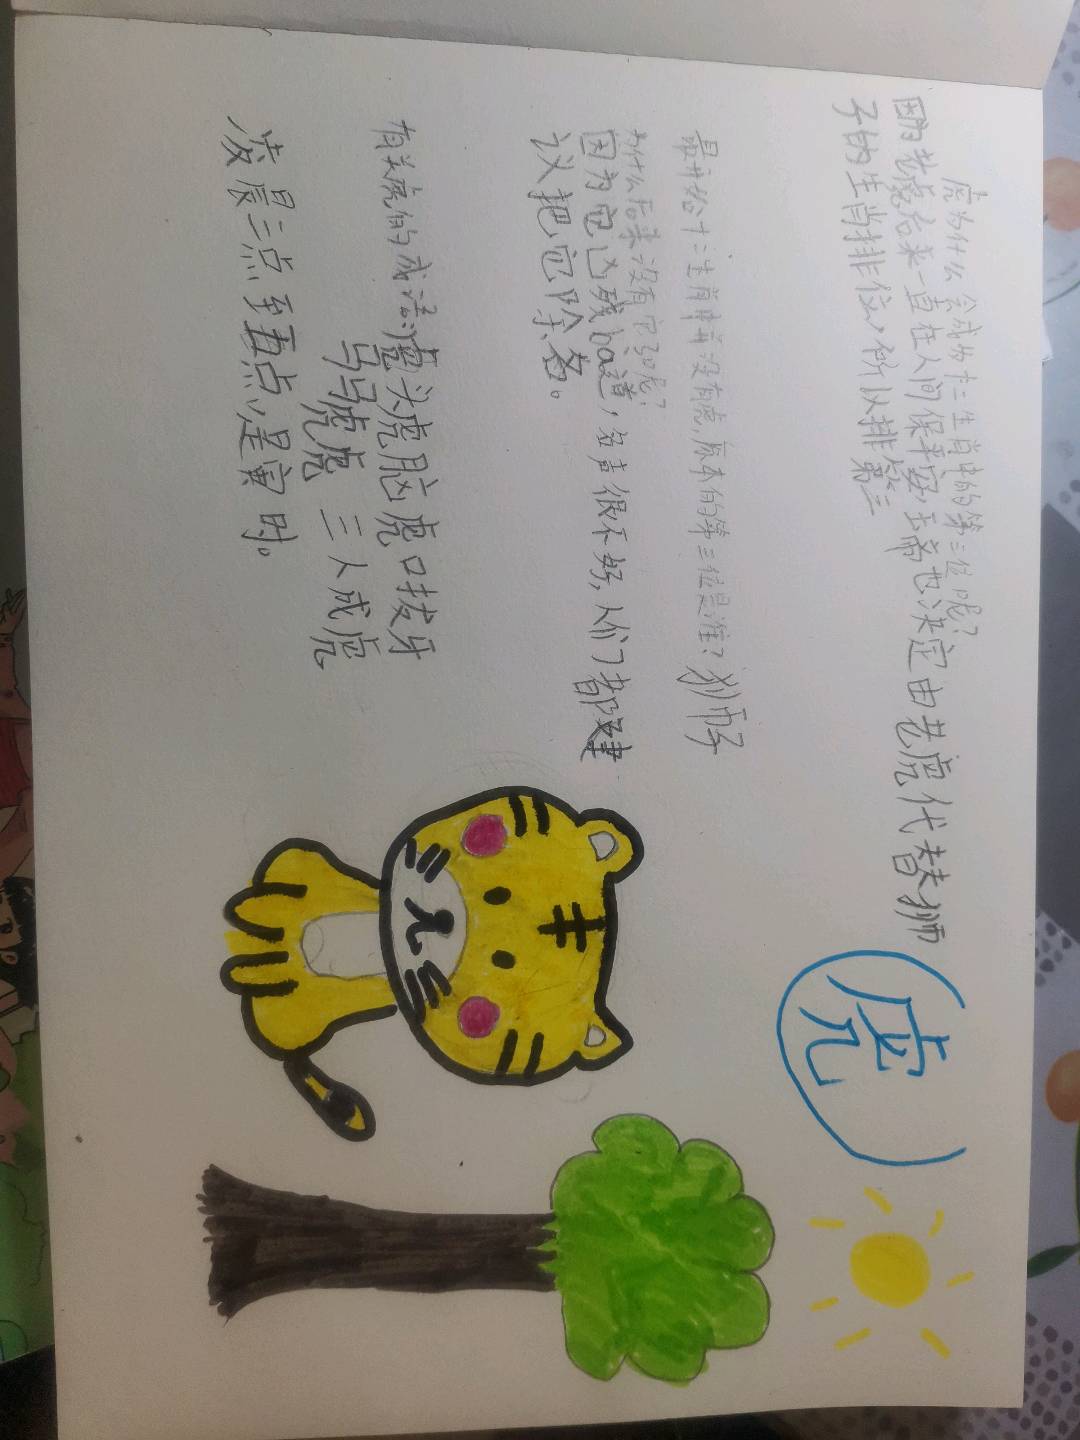 虎为什么会成为十二生肖中的第三位呢?
因为老虎后来一直在人间保平安,玉帝也决定由老虎代替狮
子的生肖排位,所以排第三
最开始十二生肖中并没有虎,原本的第三位是谁?狮子
为什么后来没有它了呢?
因为它凶残ba道,名声很不好,人们都建
议把它除名。
有关虎的成语:虎头虎脑 虎口拔牙
马马虎虎 三人成虎
凌晨三点到五点,是寅时。
虎